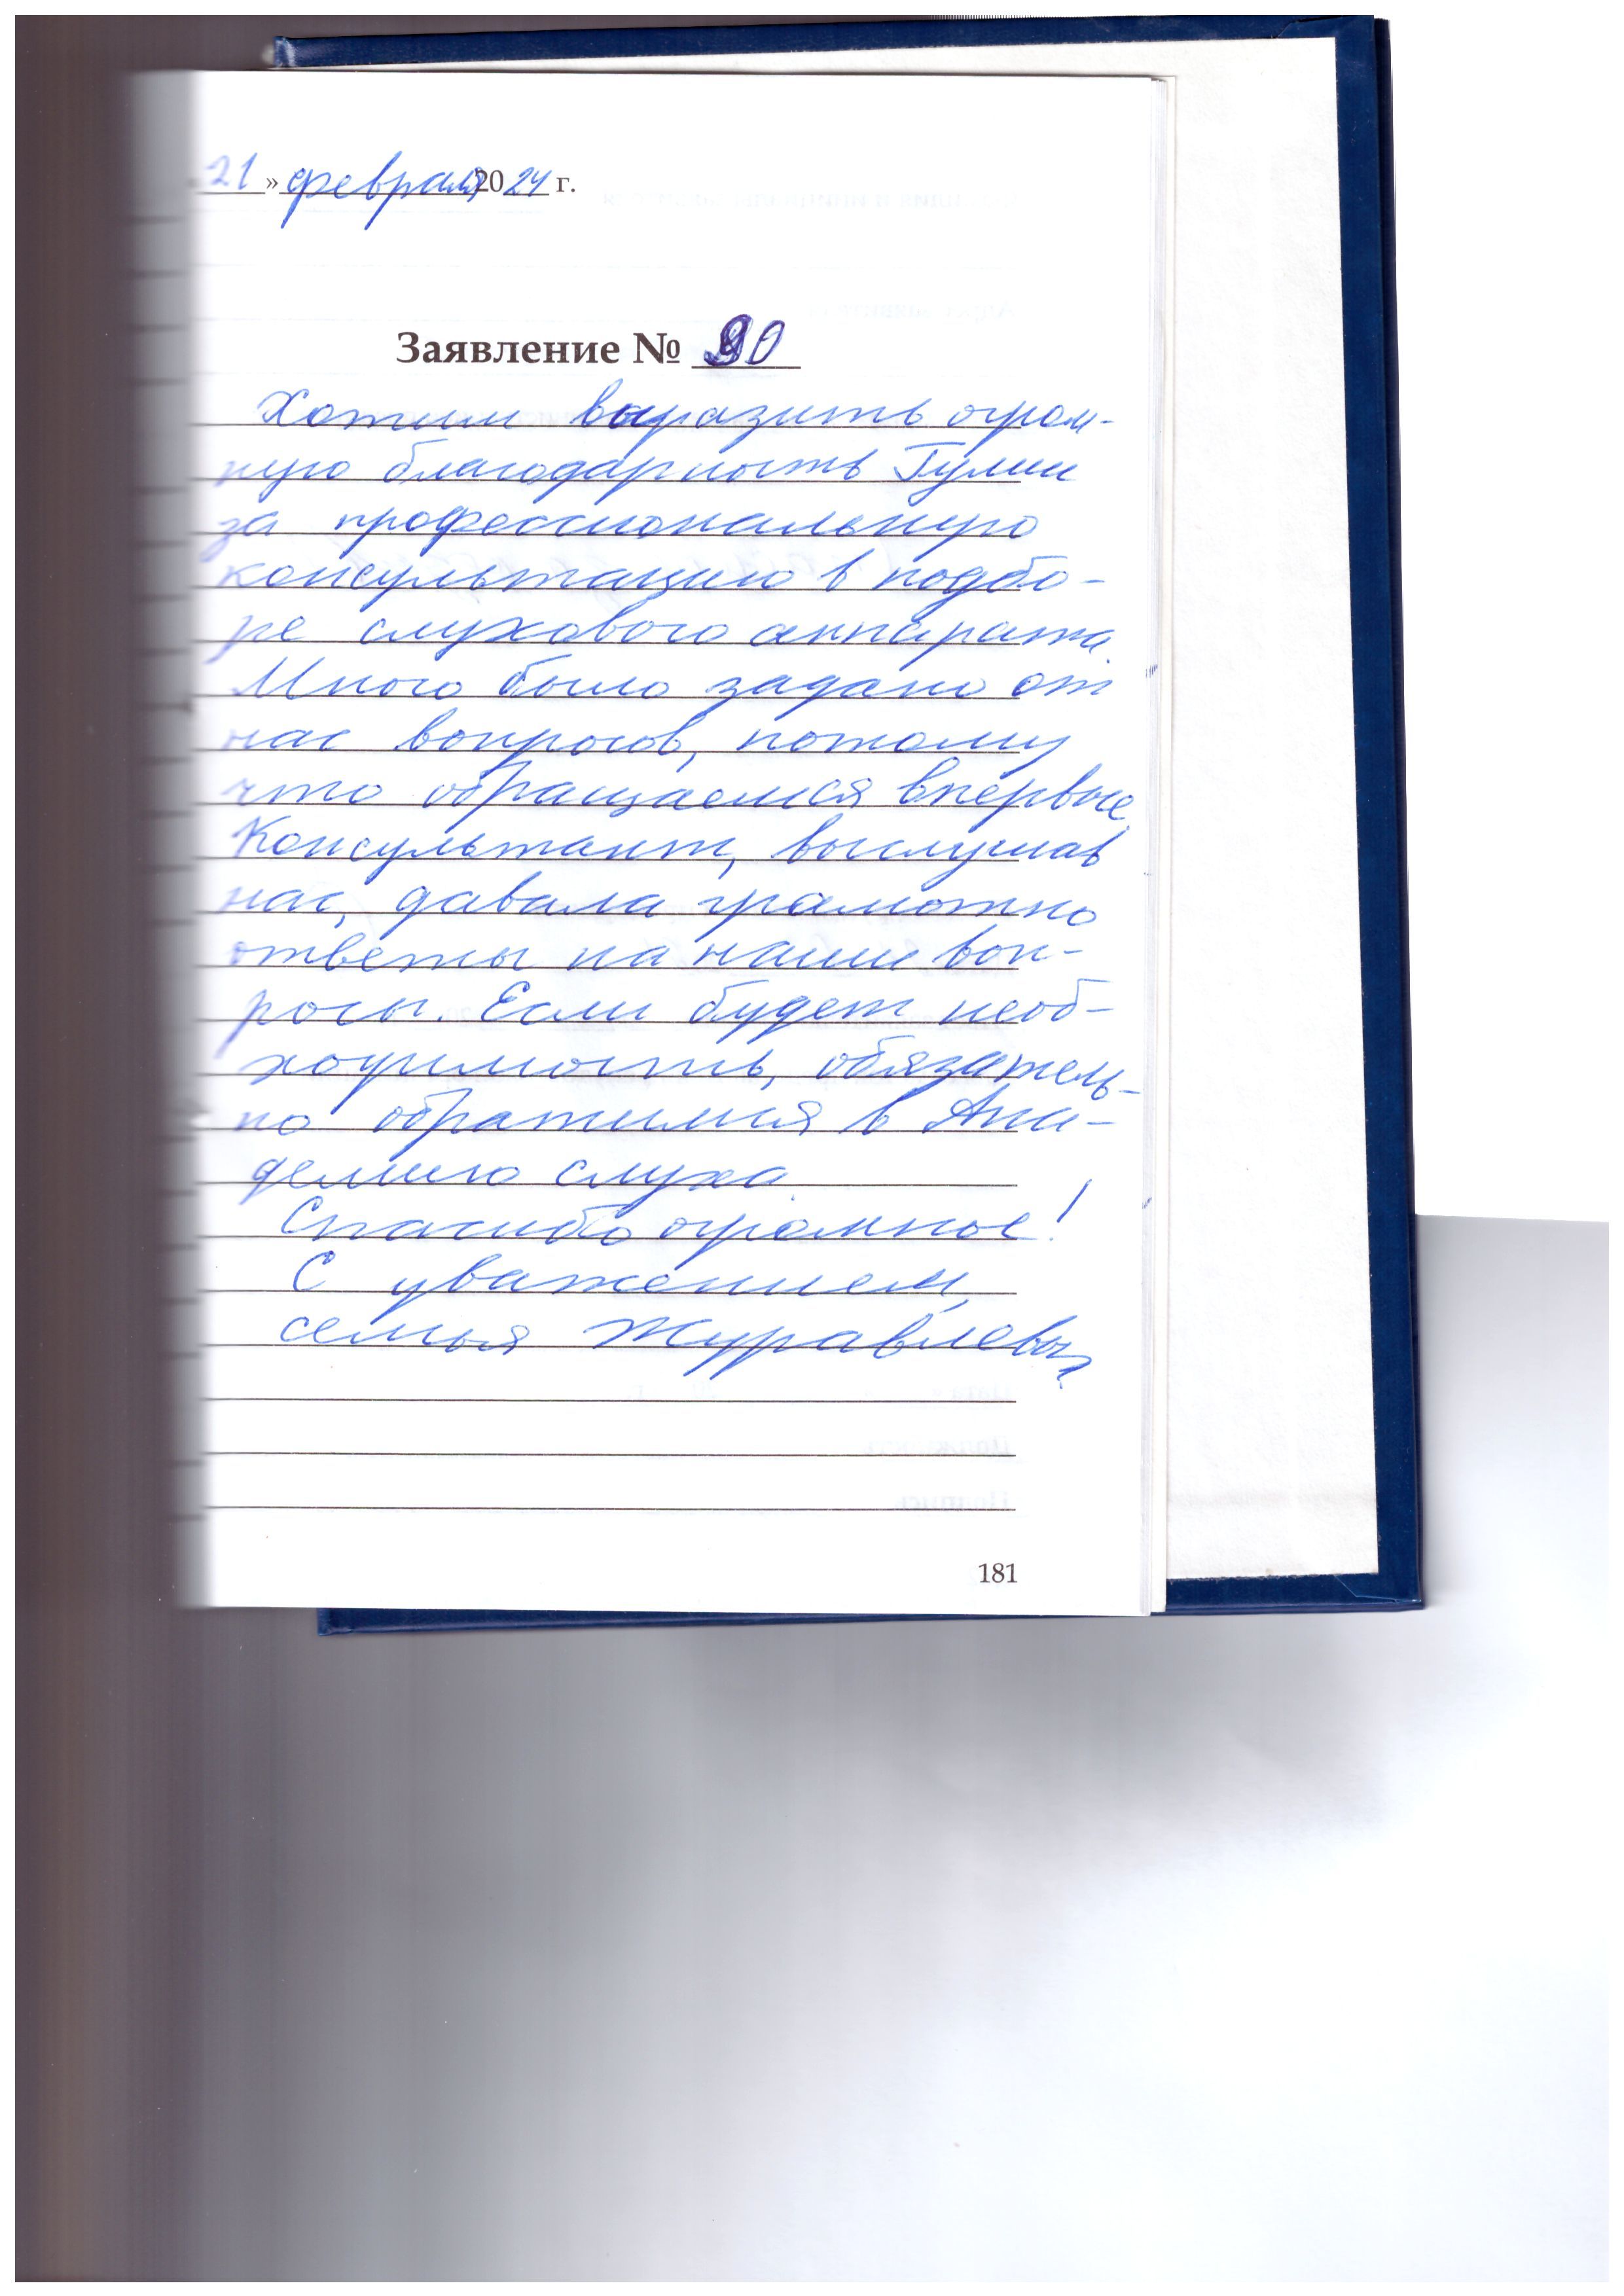 21 » февраля 2024 г.
Заявление № 90
Хотим выразить огром-
ную благодарность Гулии
за профессиональную
консультацию в подбо-
ре слухового аппарата.
Много было задано от
нас вопросов, потому
что обращаемся впервые.
Консультант, выслушав
нас, давала грамотно
ответы на наши воп-
росы. Если будет необ-
ходимость, обязатель-
но обратимся в Ака-
демию слуха.
Спасибо огромное!
С уважением,
семья Журавлевых.
181